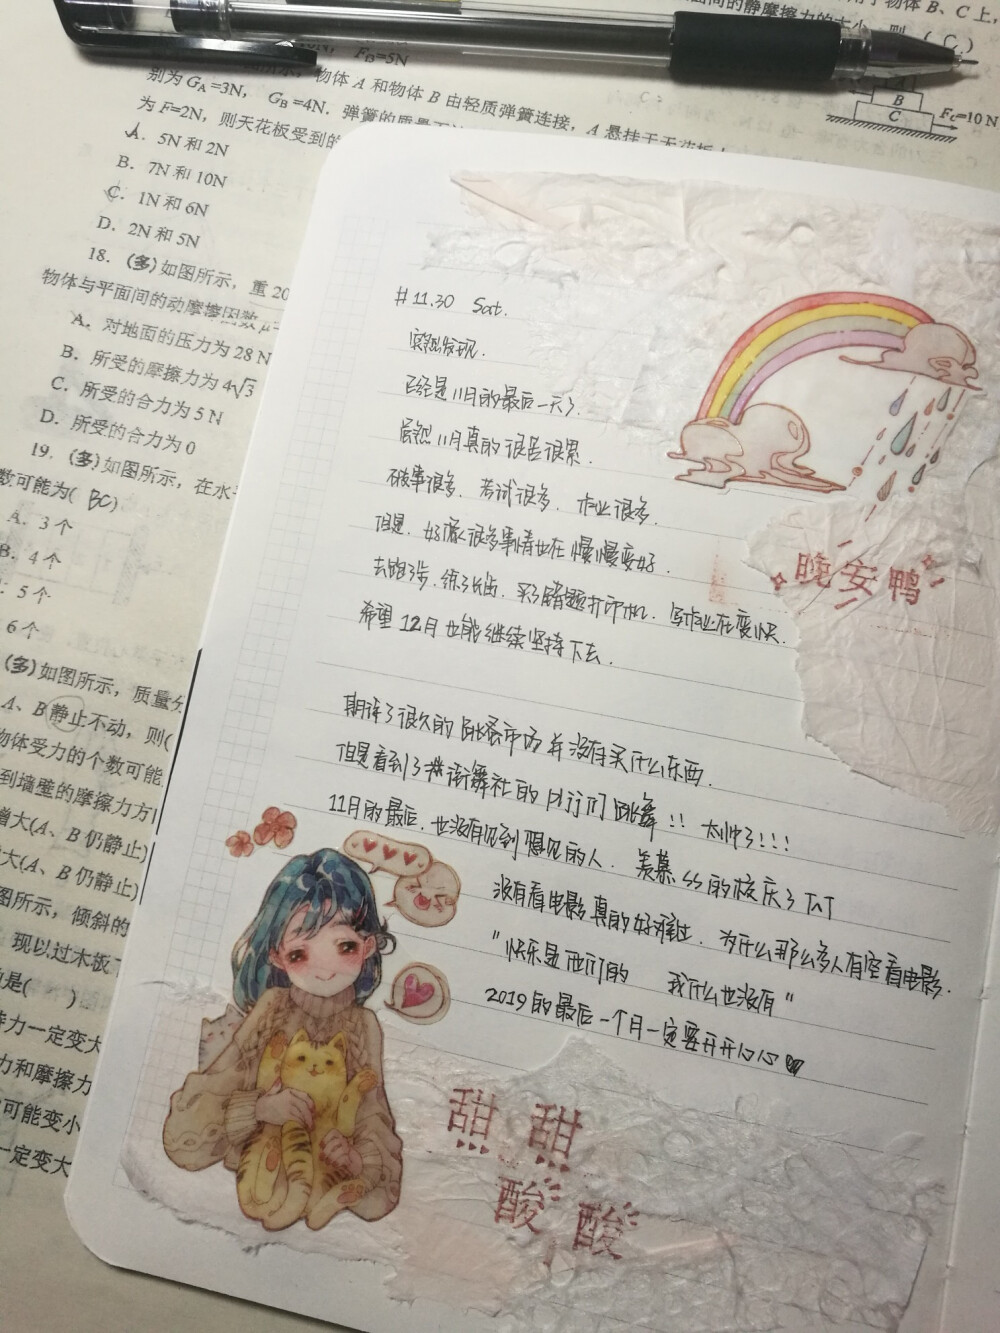 用于物体 B、C 上,
面间的静摩擦力的大小, 则 ( C )
F_B=5N
物体 A 和物体 B 由轻质弹簧连接, A 悬挂于天花板上
别为 G_A=3N, G_B=4N. 弹簧的质量
为 F=2N, 则天花板受到的
A. 5N 和 2N
B. 7N 和 10N
C. 1N 和 6N
D. 2N 和 5N
B
C
F_C=10 N
18. (多) 如图所示, 重 20
物体与平面间的动摩擦因数 μ=
A. 对地面的压力为 28 N
B. 所受的摩擦力为 4√3
C. 所受的合力为 5 N
D. 所受的合力为 0
19. (多) 如图所示, 在水
数可能为( BC )
A. 3 个
B. 4 个
: 5 个
6 个
(多) 如图所示, 质量分
A、B 静止不动, 则(
物体受力的个数可能
到墙壁的摩擦力方
增大(A、B 仍静止)
大(A、B 仍静止)
图所示, 倾斜的
现以过木板
是( )
力一定变大
力和摩擦力
可能变小
一定变大
# 11.30 Sat.
突然发现.
已经是11月的最后一天了.
虽然11月真的很苦很累.
破事很多. 考试很多. 作业很多.
但是. 好像很多事情也在慢慢变好.
去跑了步. 练了长笛. 买了错题打印机. 写作业在变快.
希望12月也能继续坚持下去.
期待了很久的跳蚤市场并没有买什么东西.
但是看到了街舞社的 跳舞!! 太帅了!!!
11月的最后. 也没有见到想见的人. 羡慕ss的校庆了TAT
没有看电影真的好难过. 为什么那么多人有空看电影.
"快乐是他们的 我什么也没有"
2019的最后一个月一定要开开心心
晚安鸭
甜 甜
酸 酸